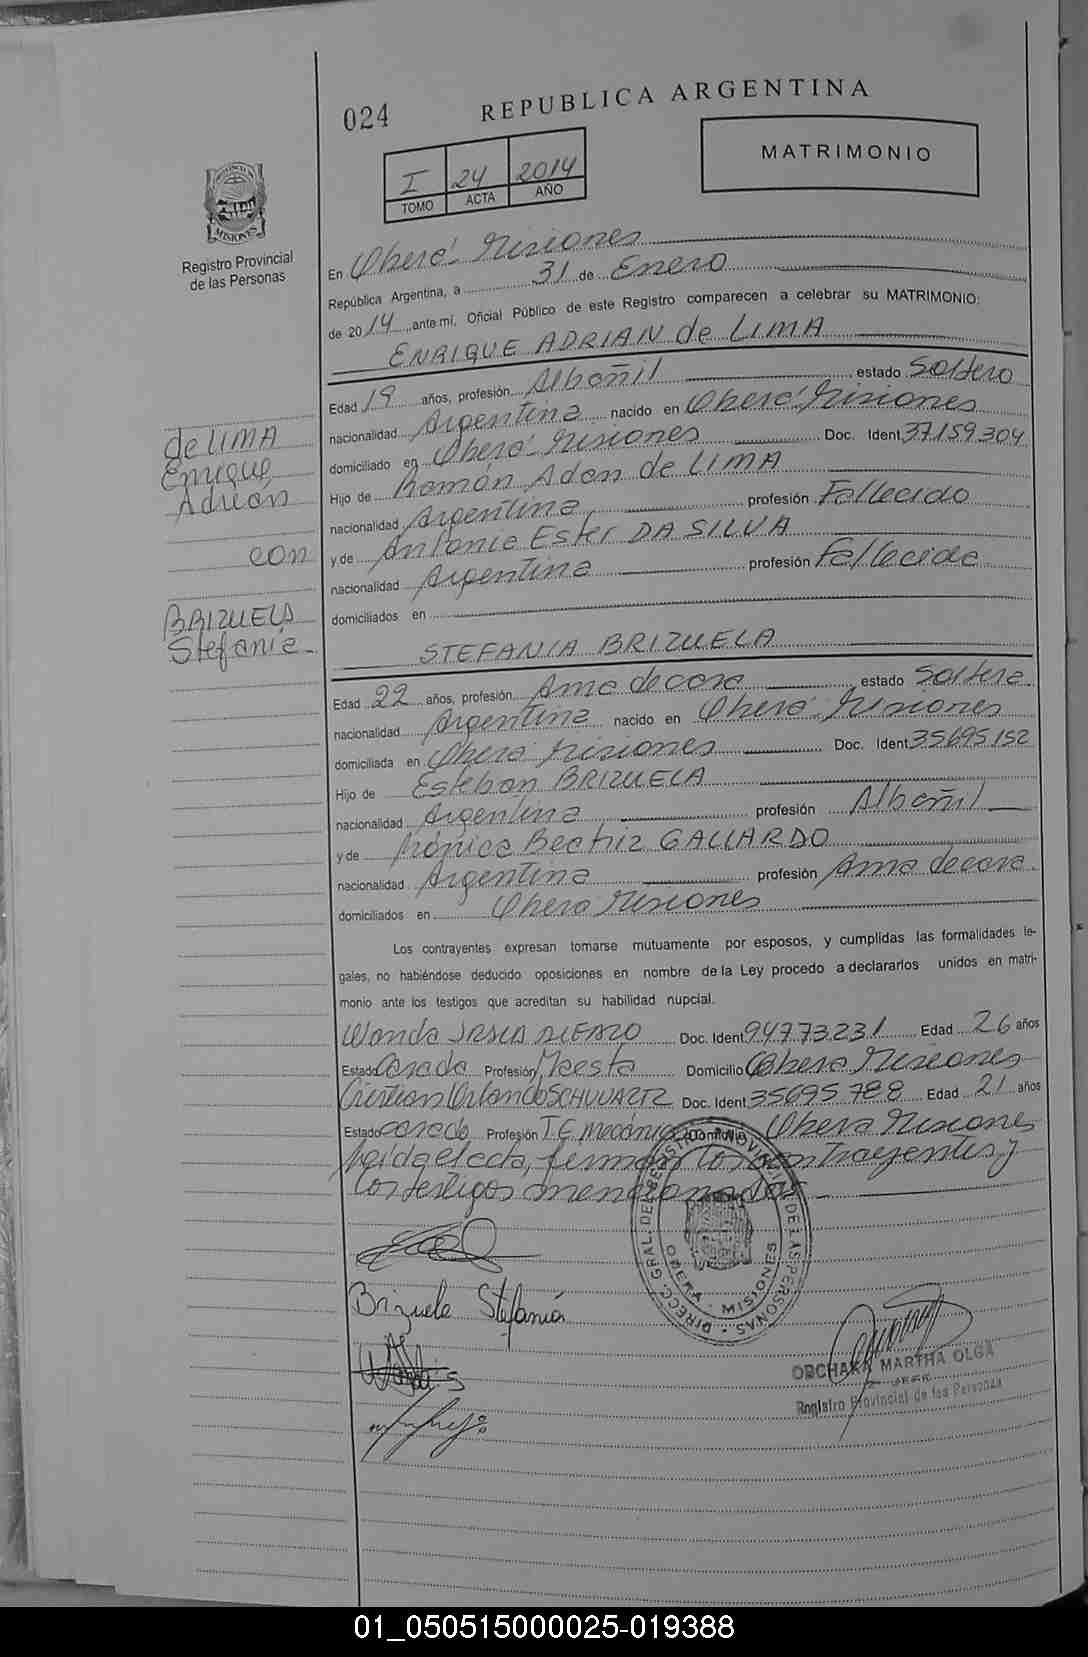 024
REPUBLICA ARGENTINA
I 24 2014
TOMO ACTA AÑO
MATRIMONIO
MISIONES
Registro Provincial
de las Personas
En Oberá - Misiones
República Argentina, a 31 de Enero
de 2014 ante mí, Oficial Público de este Registro comparecen a celebrar su MATRIMONIO:
ENRIQUE ADRIAN de LIMA
Edad 19 años, profesión Albañil estado Soltero
nacionalidad Argentina nacido en Oberá - Misiones
domiciliado en Oberá - Misiones Doc. Ident 37.159.304
Hijo de Ramón Adan de LIMA
nacionalidad Argentina profesión Fallecido
y de Antonia Ester DA SILVA
nacionalidad Argentina profesión Fallecida
domiciliados en
de LIMA
Enrique
Adrian
con
BRIZUELA
Stefania
STEFANIA BRIZUELA
Edad 22 años, profesión Ama de casa estado Soltera
nacionalidad Argentina nacido en Oberá - Misiones
domiciliada en Oberá - Misiones Doc. Ident 35695152
Hijo de Esteban BRIZUELA
nacionalidad Argentina profesión Albañil
y de Mónica Beatriz GALLARDO
nacionalidad Argentina profesión Ama de casa
domiciliados en Oberá Misiones
Los contrayentes expresan tomarse mutuamente por esposos, y cumplidas las formalidades le-
gales, no habiéndose deducido oposiciones en nombre de la Ley procedo a declararlos unidos en matri-
monio ante los testigos que acreditan su habilidad nupcial.
Wanda Doc. Ident 94773231 Edad 26 años
Estado Casada Profesión Maestra Domicilio Oberá Misiones
Cristian Orlando SCHWARTZ Doc. Ident 35695788 Edad 21 años
Estado casado Profesión Mecánico Domicilio Oberá Misiones
Leida el acta, firman los contrayentes y
los testigos mencionados
DIREC. GRAL. DEL REGISTRO PROVINCIAL DE LAS PERSONAS
OBERA - MISIONES
Brizuela Stefanía
MARTHA OLGA
JEFE
Registro Provincial de las Personas
01_050515000025-019388